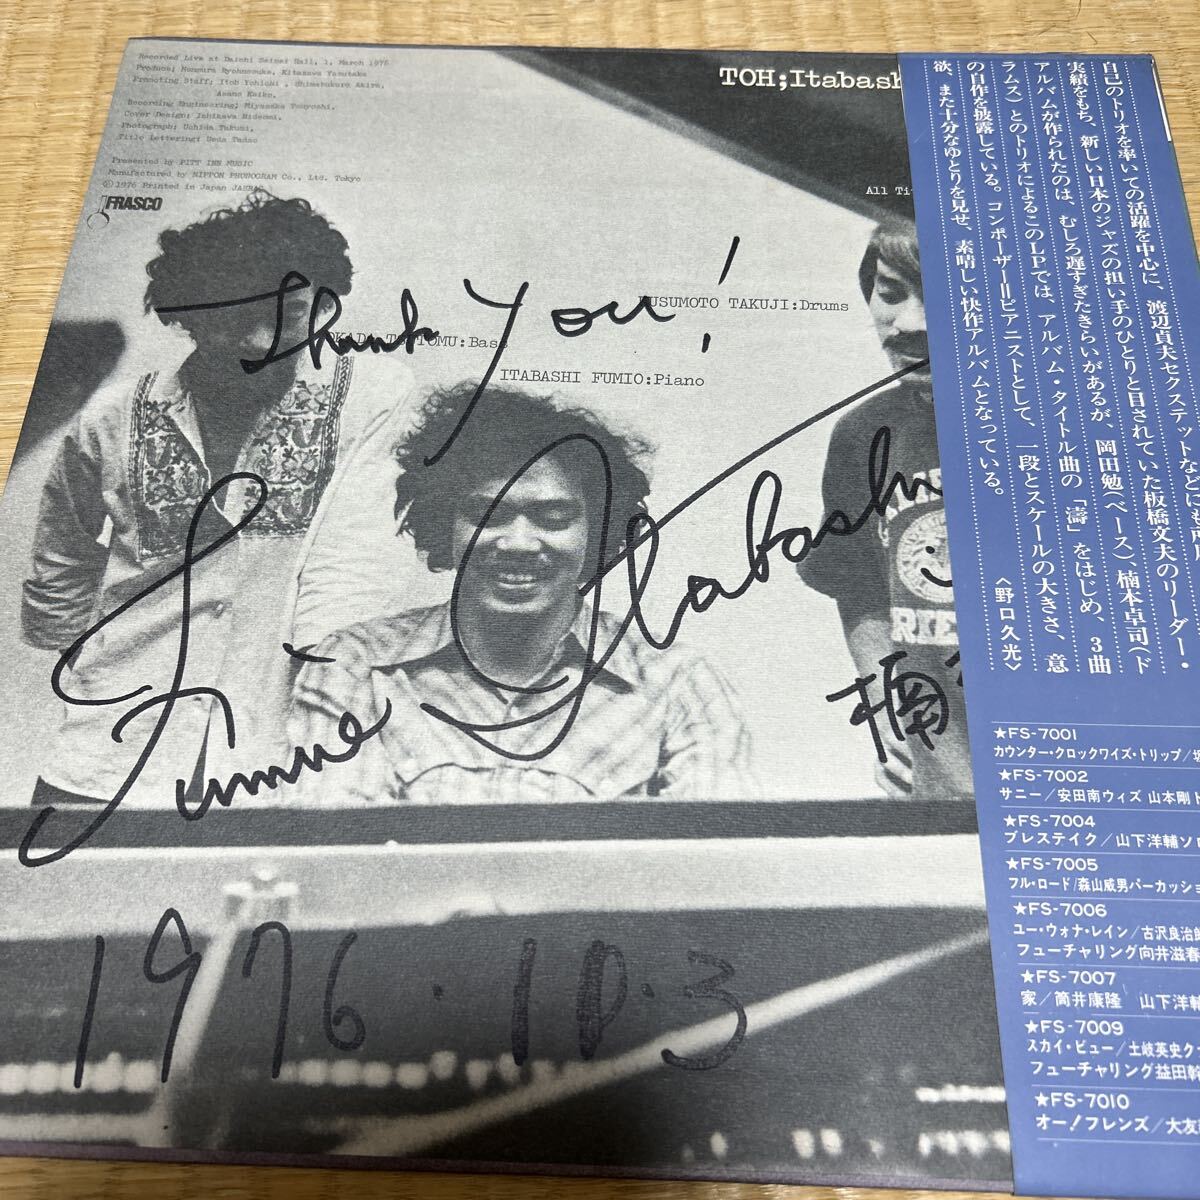 Recorded Live at Daichi Seimei Hall, 1, March 1976
Produce; Nonmura Ryohnosuke, Kitazawa Yasutaka
Promoting Staff; Itoh Yohichi , Shimabukuro Akira,
Asano Keiko,
Recording Engineering; Miyasaka Tsuyoshi,
Cover Design; Ishikawa Hidemi,
Photograph; Uchida Takumi,
Title Lettering; Ueda Tadao
Presented by PITT INN MUSIC
Manufactured by NIPPON PHONOGRAM Co., Ltd. Tokyo
Ⓒ1976 Printed in Japan
FRASCO
TOH;Itabash
All Ti
Thank you!
KUSUMOTO TAKUJI:Drums
OKADA TSUTOMU:Bass
ITABASHI FUMIO:Piano
Fumio Itabashi
楠
1976.10.3
自己のトリオを率いての活躍を中心に、渡辺貞夫セクステットなどに
実績をもち、新しい日本のジャズの担い手のひとりと目されていた板橋文夫のリーダー・
アルバムが作られたのは、むしろ遅すぎたきらいがあるが、岡田勉(ベース)、楠本卓司(ド
ラムス)とのトリオによるこのLPでは、アルバム・タイトル曲の「濤」をはじめ、3曲
の自作を披露している。コンポーザー=ピアニストとして、一段とスケールの大きさ、意
欲、また十分なゆとりを見せ、素晴しい快作アルバムとなっている。
〈野口久光〉
★FS-7001
カウンター・クロックワイズ・トリップ/
★FS-7002
サニー/安田南ウィズ 山本剛ト
★FS-7004
ブレステイク/山下洋輔ソロ
★FS-7005
フル・ロード/森山威男パーカッショ
★FS-7006
ユー・ウォナ・レイン/古沢良治郎
フューチャリング向井滋春
★FS-7007
家/筒井康隆 山下洋輔
★FS-7009
スカイ・ビュー/土岐英史ク
フューチャリング益田幹
★FS-7010
オー!フレンズ/大友